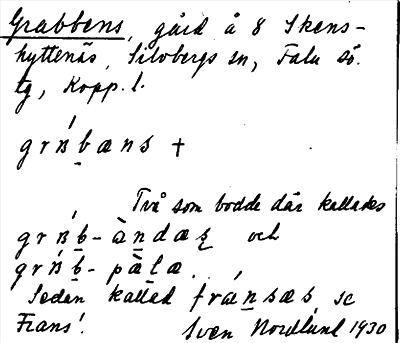 Grabbens, gård å 8 Skens-
hyttenäs, Silvbergs sn, Falu sö.
tg, Kopp. l.
grᴃb̠æns +
Två som bodde där kallades
grᴃb̠-àn̠dæʂ och
grᴃb̠-pæ̀læ.
Sedan kallad fræn̠sæs, se
Frans!
Sven Nordlund 1930